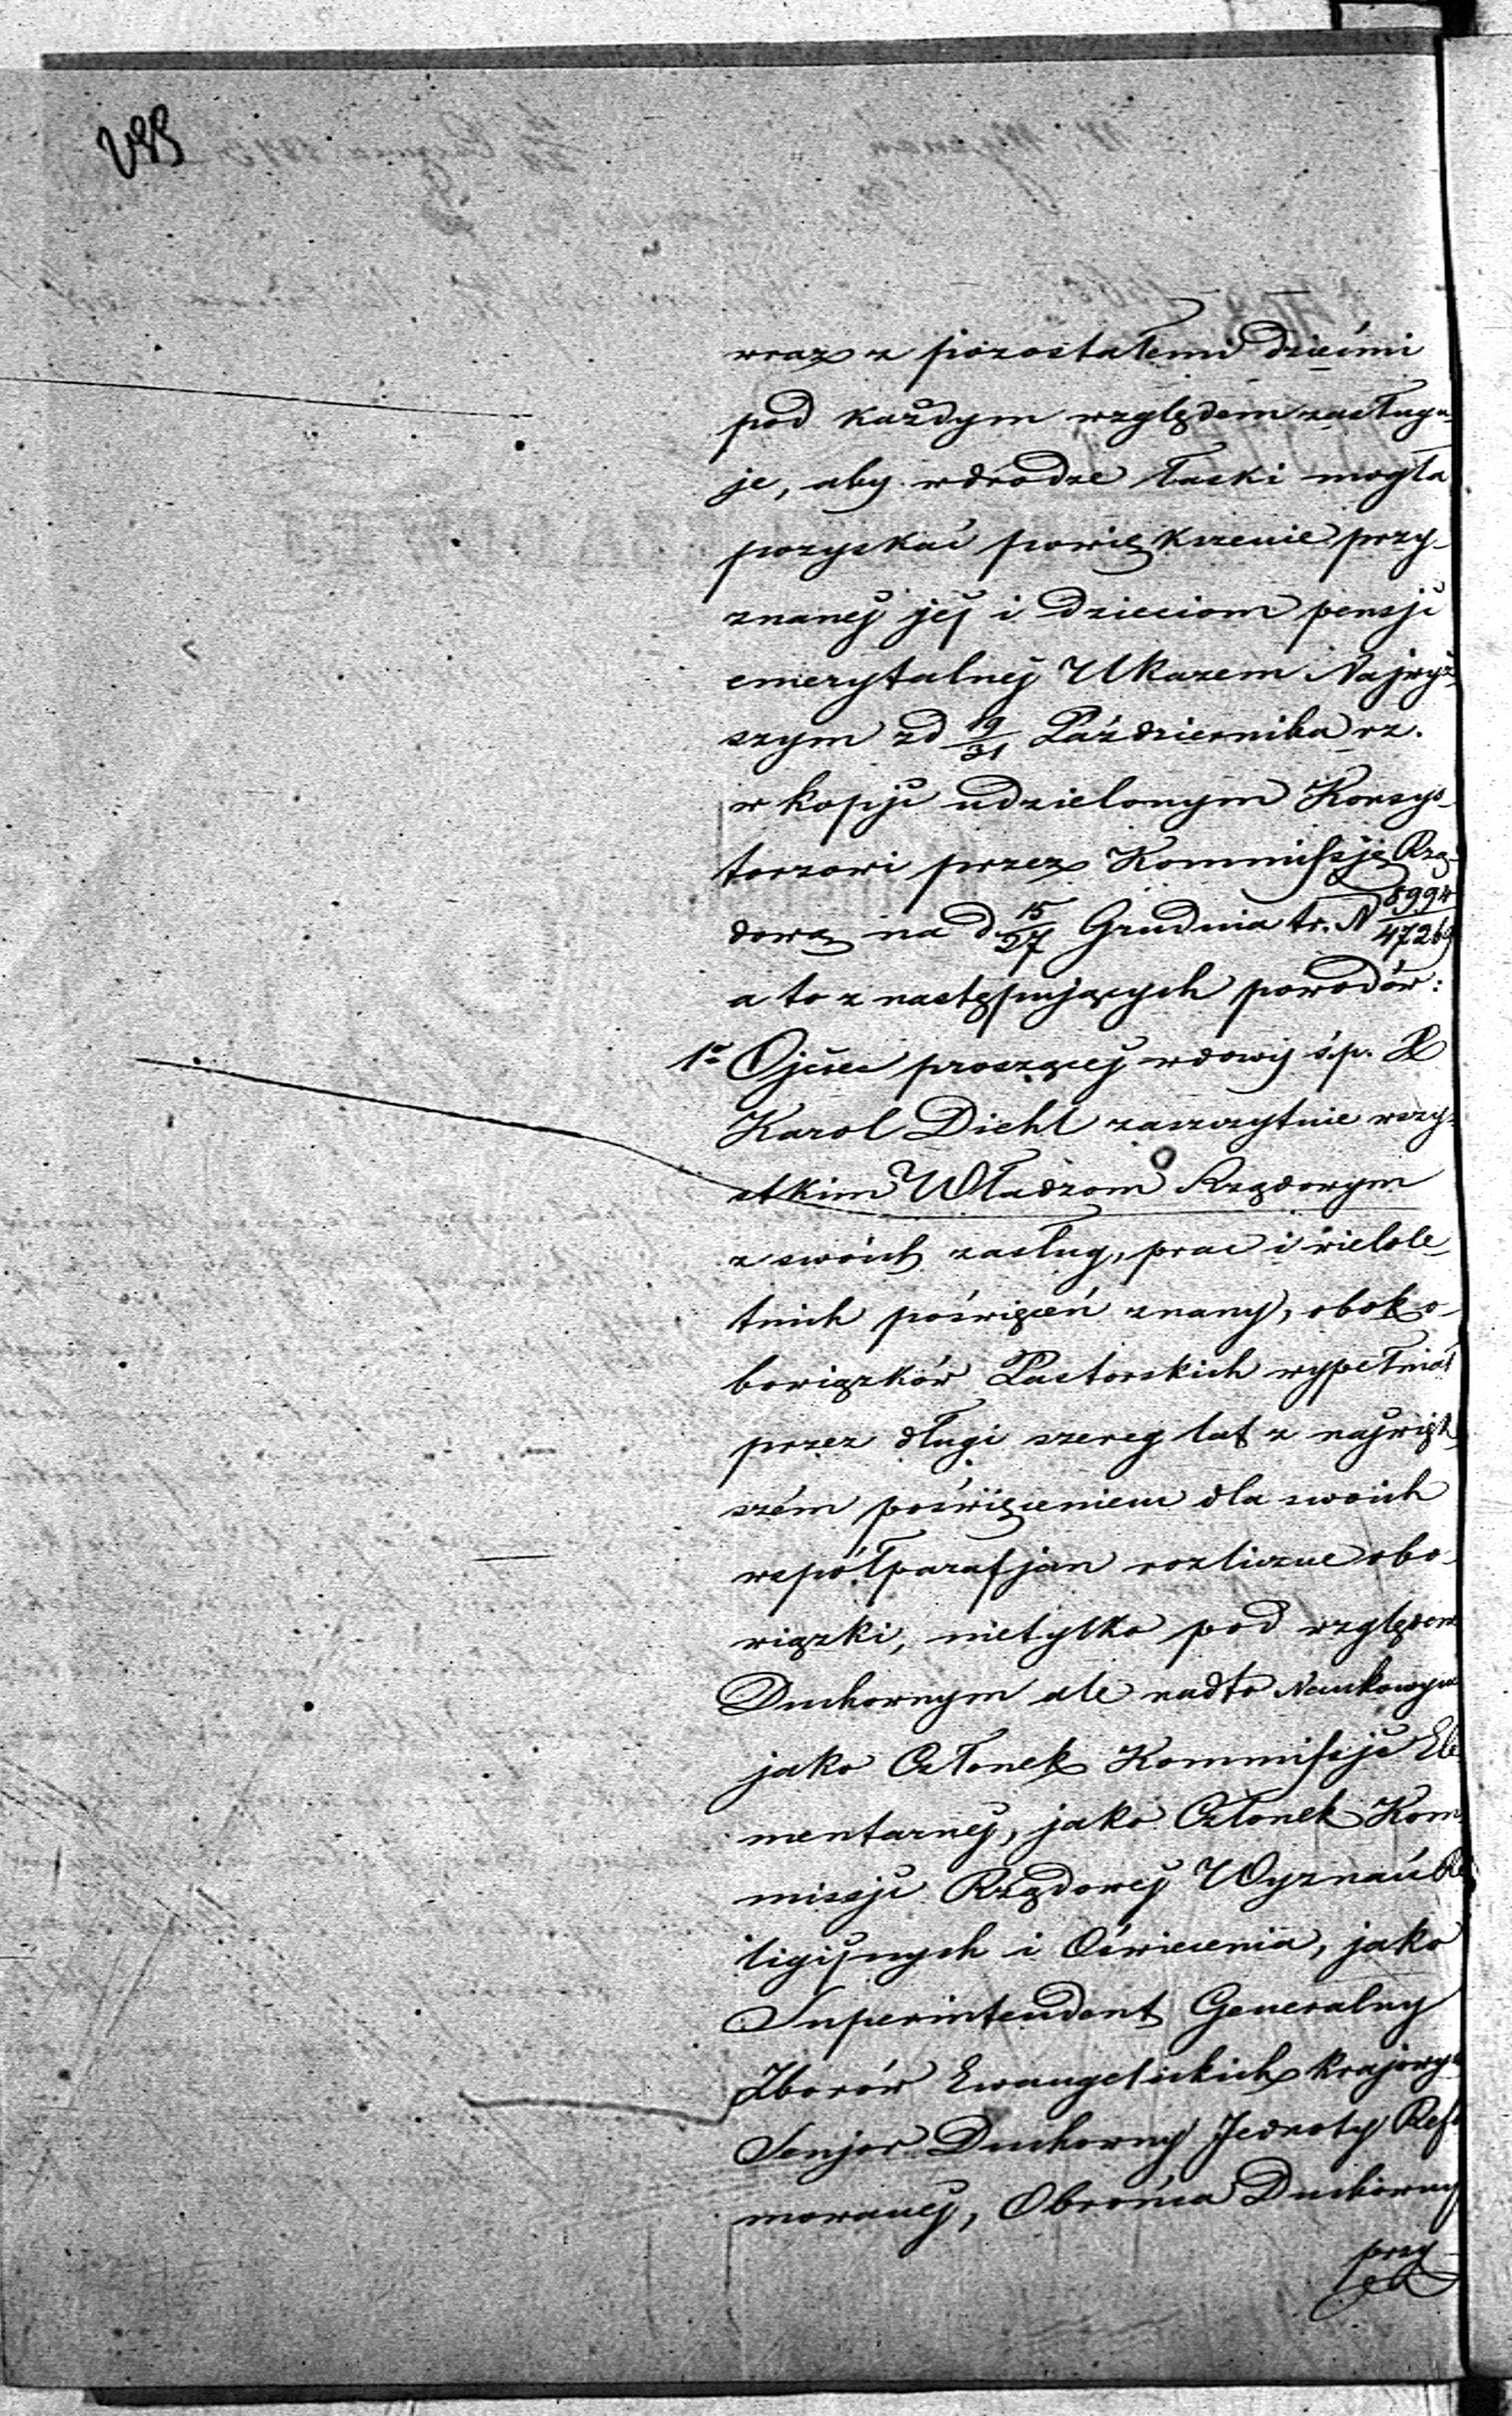 wraz z pozostałemi dziećmi
pod każdym względem zasługu-
je, aby wdrodze łaski mogła
pozyskać powiększenie przy-
znanej jej i dzieciom pensji
emerytalnej Ukazem Najwyż-
szym zd 19/31 Października rz.
w kopji udzielonym Konsys-
torzowi przez Kommissję Rzą-
dową na d 15/27 Grudnia tr. N 8994/47269
a to z następujących powodów:
1o Ojciec proszącej wdowy ś.p. X
Karol Diehl zaszczytnie wszy-
stkim Władzom Rządowym
z swoich zasług, prac i wielole-
tnich poświęceń znany, obok o-
bowiązków Pastorskich wypełniał
przez długi szereg lat z najwięk-
szém poświęceniem dla swoich
współparafjan rozliczne obo-
wiązki, nietylko pod względem
Duchownym ale nadto Naukowym
jako Członek Kommissji Ele-
mentarnej, jako Członek Kom-
missji Rządowej Wyznań Re-
ligijnych i Oświecenia, jako
Superintendent Generalny
Zborów Ewangelickich krajowych
Senjor Duchowny Jednoty Refor-
mowanej, Obrońca Duchowny
przy